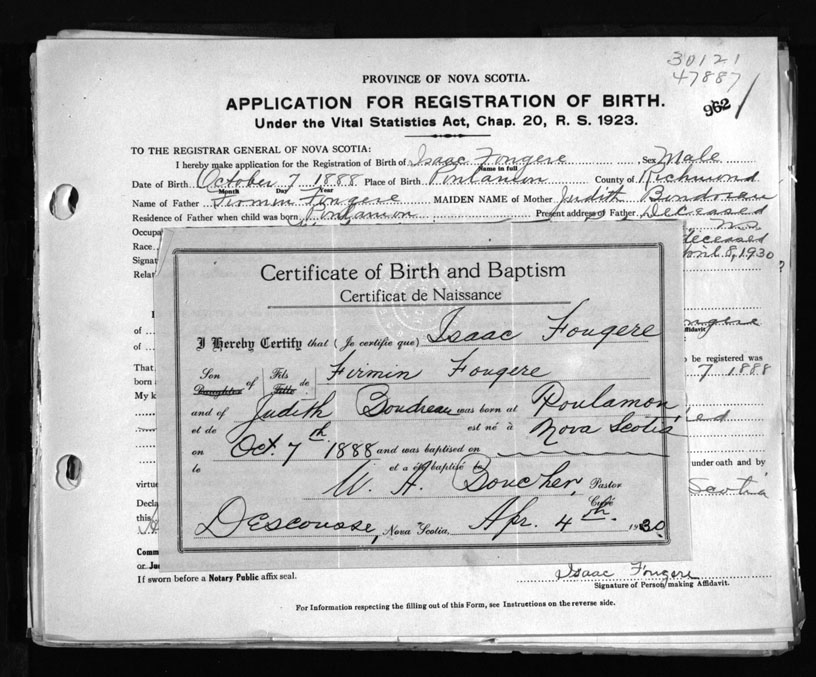 30121
47887
962
PROVINCE OF NOVA SCOTIA.
APPLICATION FOR REGISTRATION OF BIRTH.
Under the Vital Statistics Act, Chap. 20, R. S. 1923.
TO THE REGISTRAR GENERAL OF NOVA SCOTIA:
I hereby make application for the Registration of Birth of Isaac Fougere Sex Male
Name in full
Date of Birth October 7 1888 Place of Birth Poulamon County of Richmond
Month Day Year
Name of Father Firmin Fougere MAIDEN NAME of Mother Judith Boudreau
Residence of Father when child was born Poulamon Present address of Father Deceased
Occupa N.S.
Race deceased
Signat April 8, 1930
Relat ?
I
of ougere
ffidavit
of
That be registered was
born 7 1888
My k
under oath and by
virtue Scotia
Decla
this
Comm
or Ju
If sworn before a Notary Public affix seal.
Isaac Fougere
Signature of Person making Affidavit.
For Information respecting the filling out of this Form, see Instructions on the reverse side.
Certificate of Birth and Baptism
Certificat de Naissance
I Hereby Certify that (Je certifie que) Isaac Fougere
Son Fils
Daughter of Fille de Firmin Fougere
and of Judith Boudreau was born at Poulamon,
et de est né à Nova Scotia
on Oct. 7th 1888 and was baptised on
le et a été baptisé le
W. A. Boucher, Pastor
Curé
Descousse, Nova Scotia, Apr. 4th. 1930.